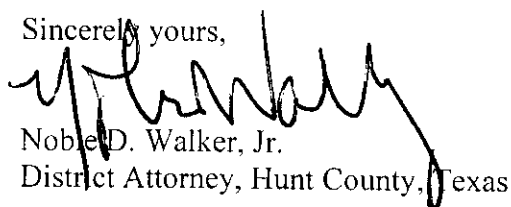 Sincerely yours,
Noble D. Walker, Jr.
District Attorney, Hunt County, Texas